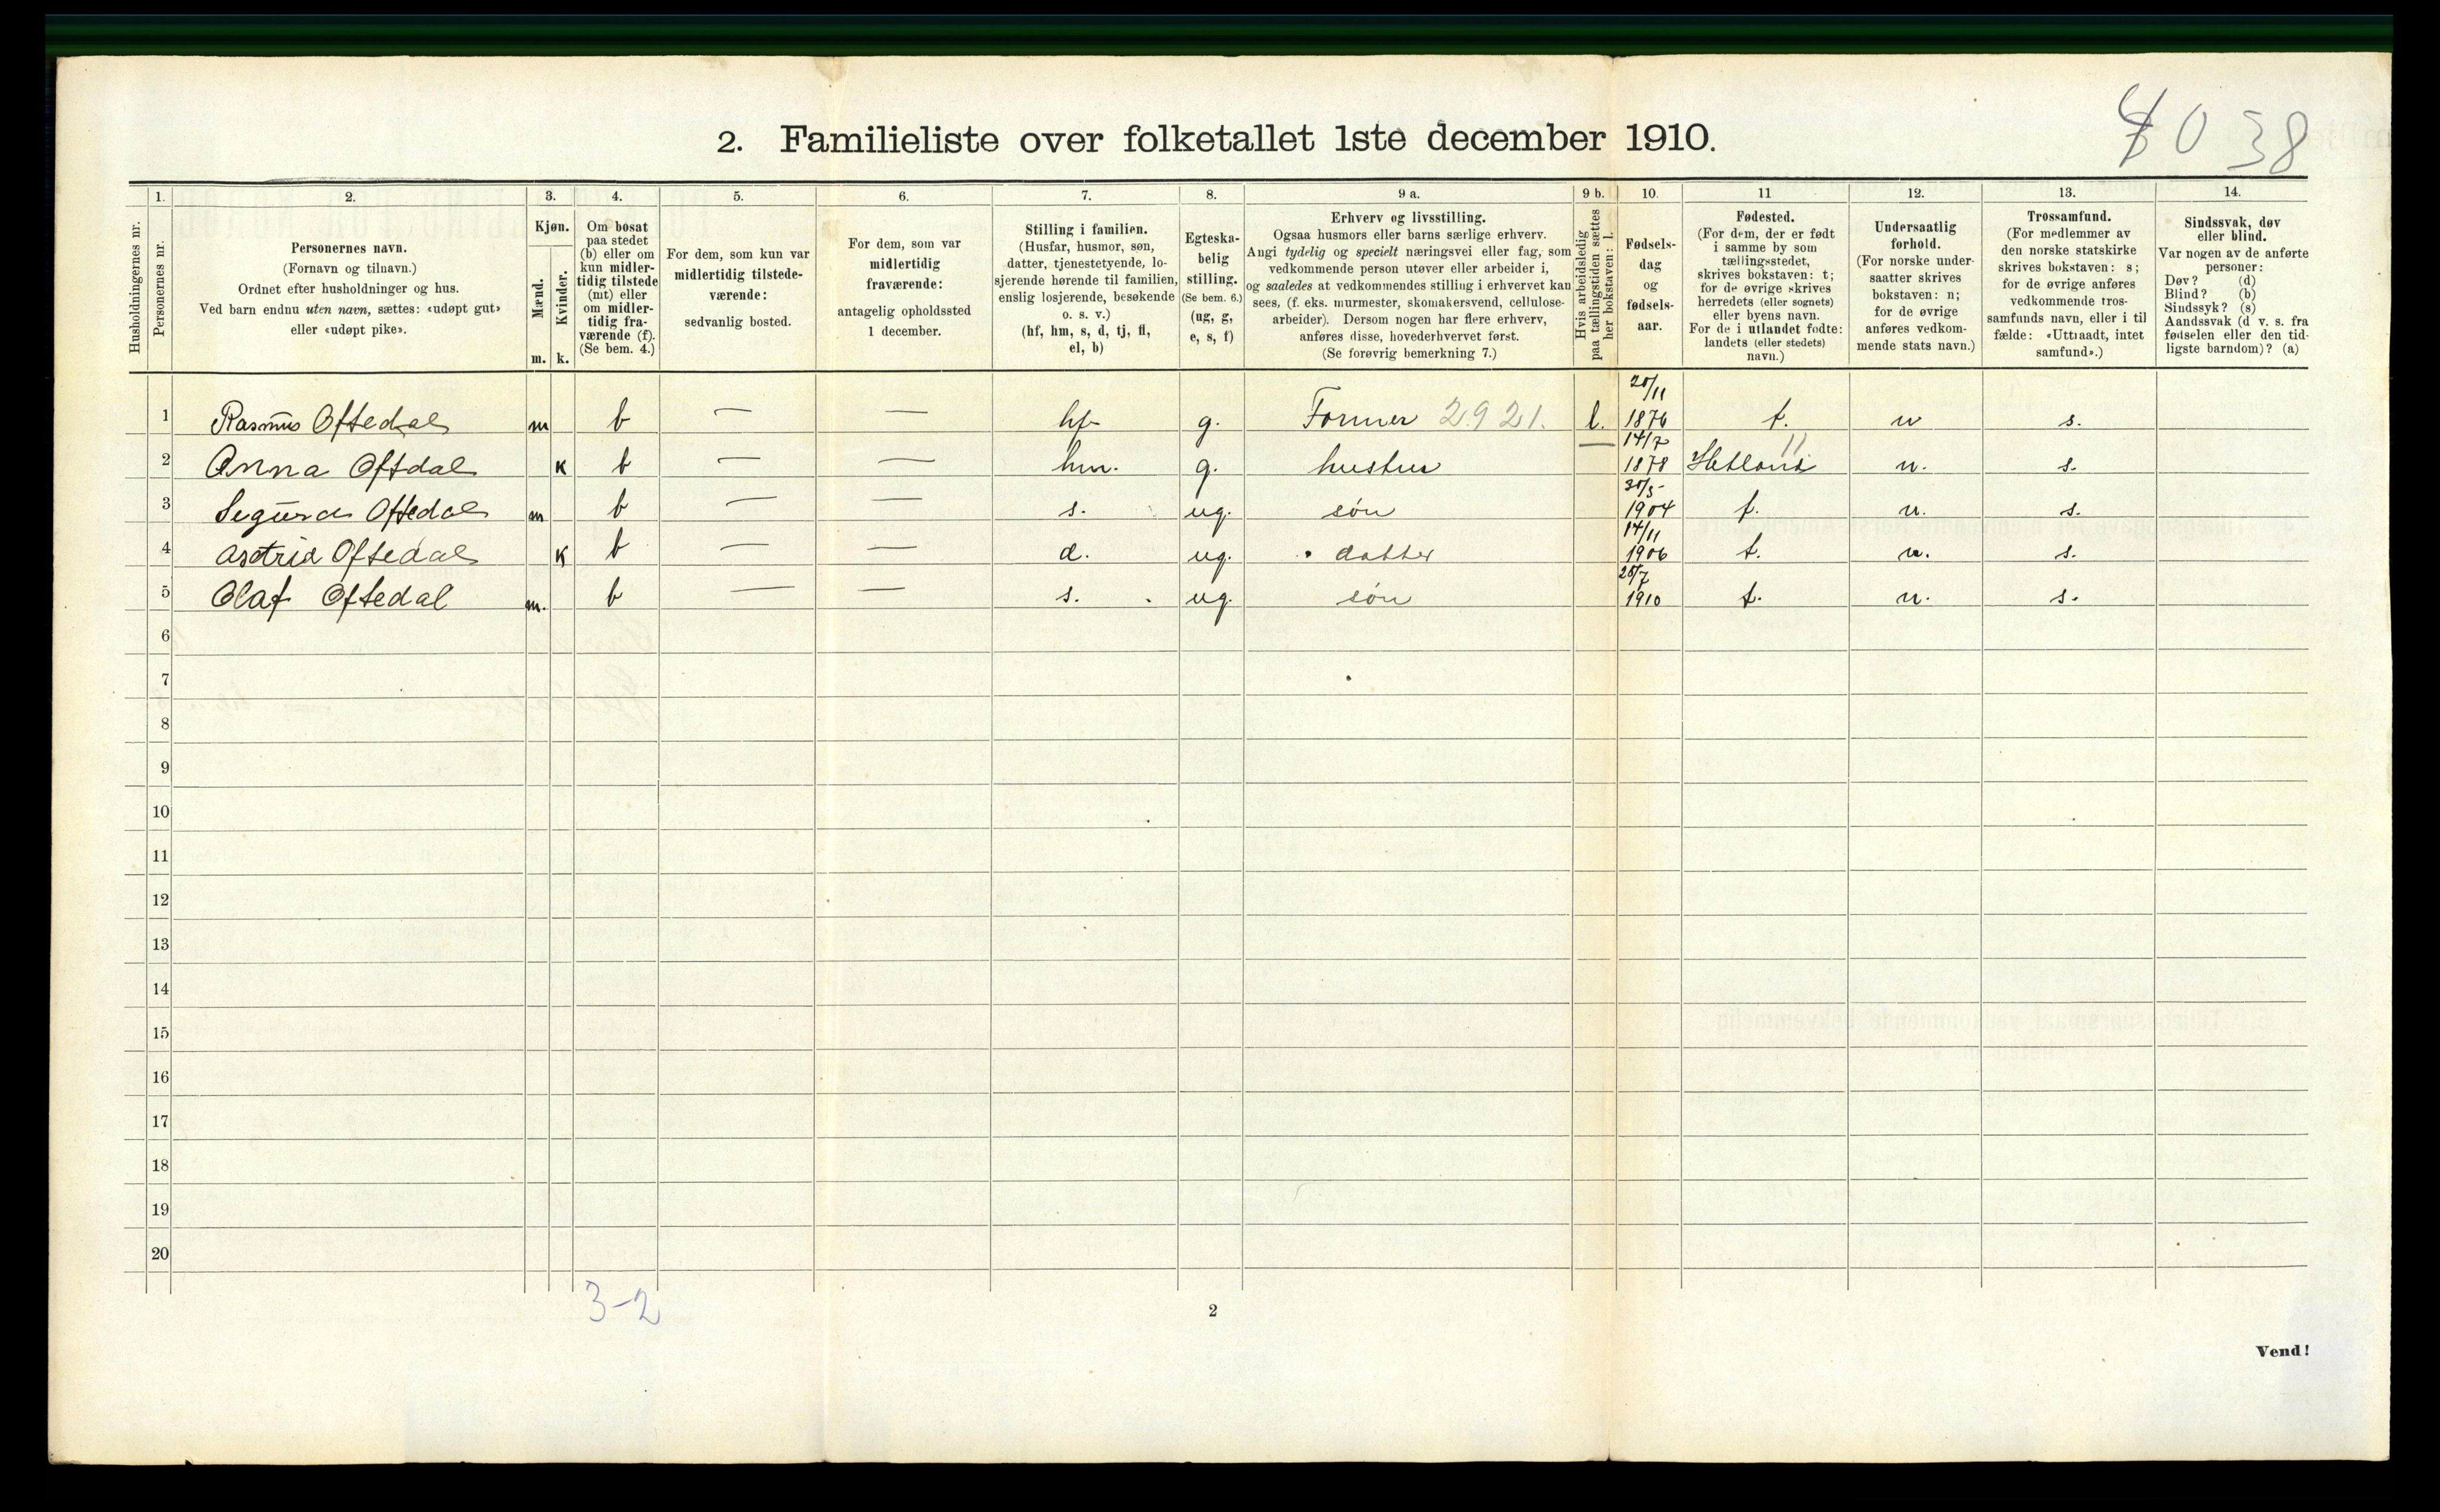 4 0 38
2. Familieliste over folketallet 1ste december 1910.
1. 2. 3. 4. 5. 6. 7. 8. 9 a. 9 b. 10. 11 12. 13. 14.
Husholdningernes nr.
Personernes nr.
Personernes navn.
(Fornavn og tilnavn.)
Ordnet efter husholdninger og hus.
Ved barn endnu uten navn, sættes: «udøpt gut»
eller «udøpt pike».
Kjøn.
Mænd.
Kvinder.
m. k.
Om bosat
paa stedet
(b) eller om
kun midler-
tidig tilstede
(mt) eller
om midler-
tidig fra-
værende (f).
(Se bem. 4.)
For dem, som kun var
midlertidig tilstede-
værende:
sedvanlig bosted.
For dem, som var
midlertidig
fraværende:
antagelig opholdssted
1 december.
Stilling i familien.
(Husfar, husmor, søn,
datter, tjenestetyende, lo-
sjerende hørende til familien,
enslig losjerende, besøkende
o. s. v.)
(hf, hm, s, d, tj, fl,
el, b)
Egteska-
belig
stilling.
(Se bem. 6.)
(ug, g,
e, s, f)
Erhverv og livsstilling.
Ogsaa husmors eller barns særlige erhverv.
Angi tydelig og specielt næringsvei eller fag, som
vedkommende person utøver eller arbeider i,
og saaledes at vedkommendes stilling i erhvervet kan
sees, (f. eks. murmester, skomakersvend, cellulose-
arbeider). Dersom nogen har flere erhverv,
anføres disse, hovederhvervet først.
(Se forøvrig bemerkning 7.)
Hvis arbeidsledig
paa tællingstiden sættes
her bokstaven: l.
Fødsels-
dag
og
fødsels-
aar.
Fødested.
(For dem, der er født
i samme by som
tællingsstedet,
skrives bokstaven: t;
for de øvrige skrives
herredets (eller sognets)
eller byens navn.
For de i utlandet fødte:
landets (eller stedets)
navn.)
Undersaatlig
forhold.
(For norske under-
saatter skrives
bokstaven: n;
for de øvrige
anføres vedkom-
mende stats navn.)
Trossamfund.
(For medlemmer av
den norske statskirke
skrives bokstaven: s;
for de øvrige anføres
vedkommende tros-
samfunds navn, eller i til
fælde: «Uttraadt, intet
samfund».)
Sindssvak, døv
eller blind.
Var nogen av de anførte
personer:
Døv? (d)
Blind? (b)
Sindssyk? (s)
Aandssvak (d v. s. fra
fødselen eller den tid-
ligste barndom)? (a)
1 Rasmus Oftedal m b — — hf g. Former 2921. l. 20/11 1876 t. n s.
2 Anna Oftdal k b — — hm. g. hustru 14/7 1878 Hetland 11 n. s.
3 Segurd Oftedal m b — — s. ug. søn 30/5 1904 t. n. s.
4 Astrid Oftedal k b — — d. ug. datter 14/11 1906 t. n. s.
5 Olaf Oftedal m. b — — s. ug. søn 28/7 1910 t. n. s.
6
7
8
9
10
11
12
13
14
15
16
17
18
19
20
3-2
2
Vend!